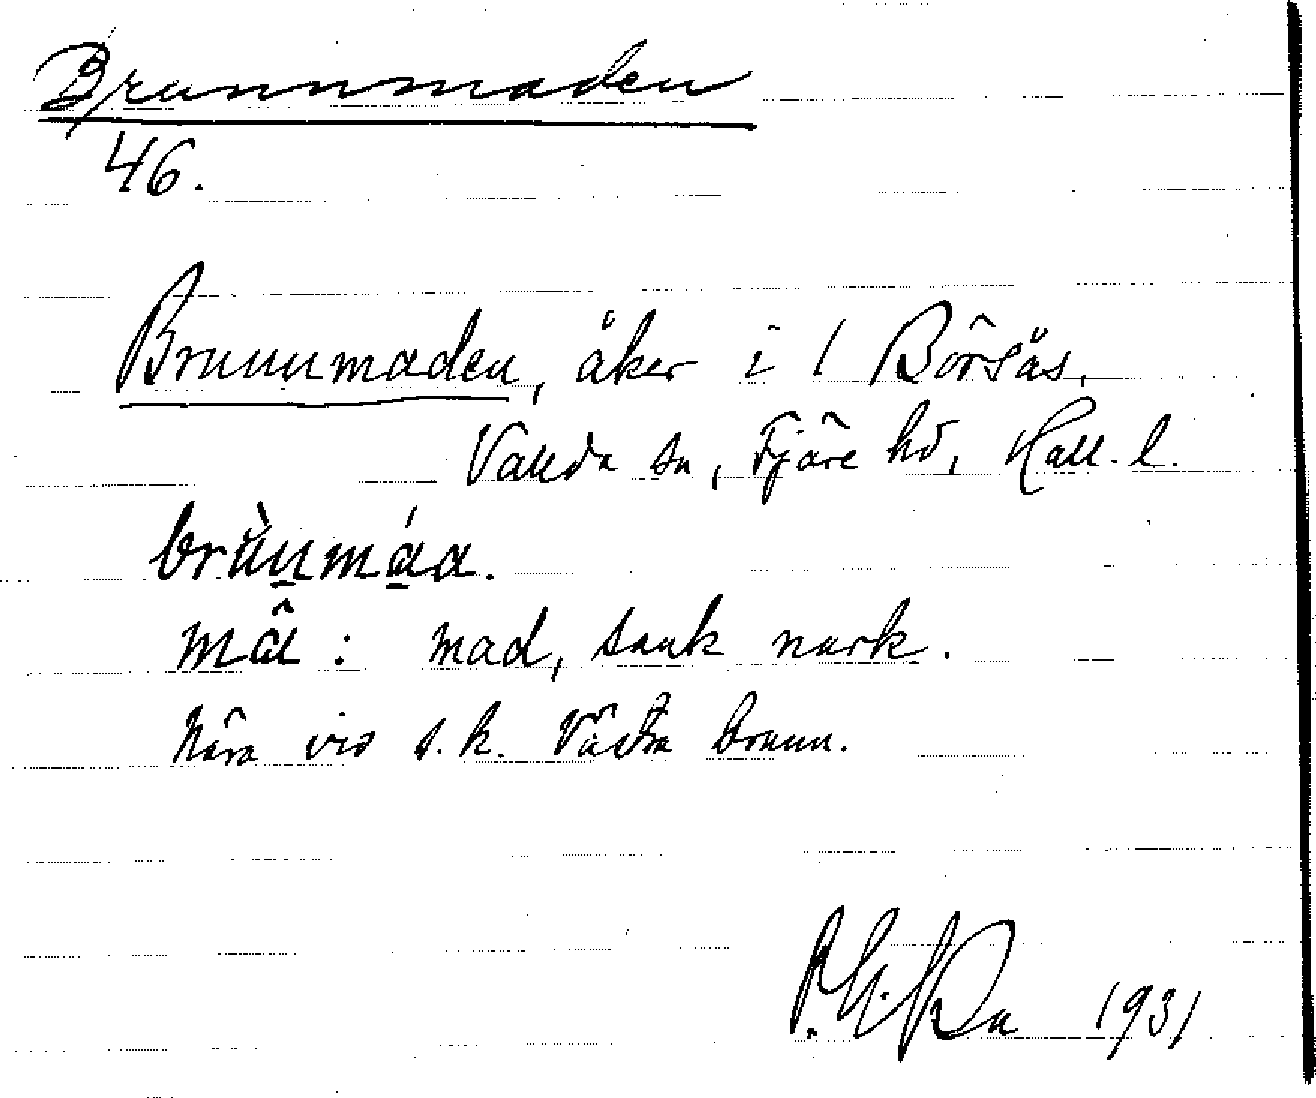 Brunnmaden
46.
Brunnmaden, åker i 1 Börsås,
Vallda sn, Fjäre hd, Hall. l.
brùnmáa.
mâ : mad, sank mark.
Nära vid s.k. Västra brunn.
1931